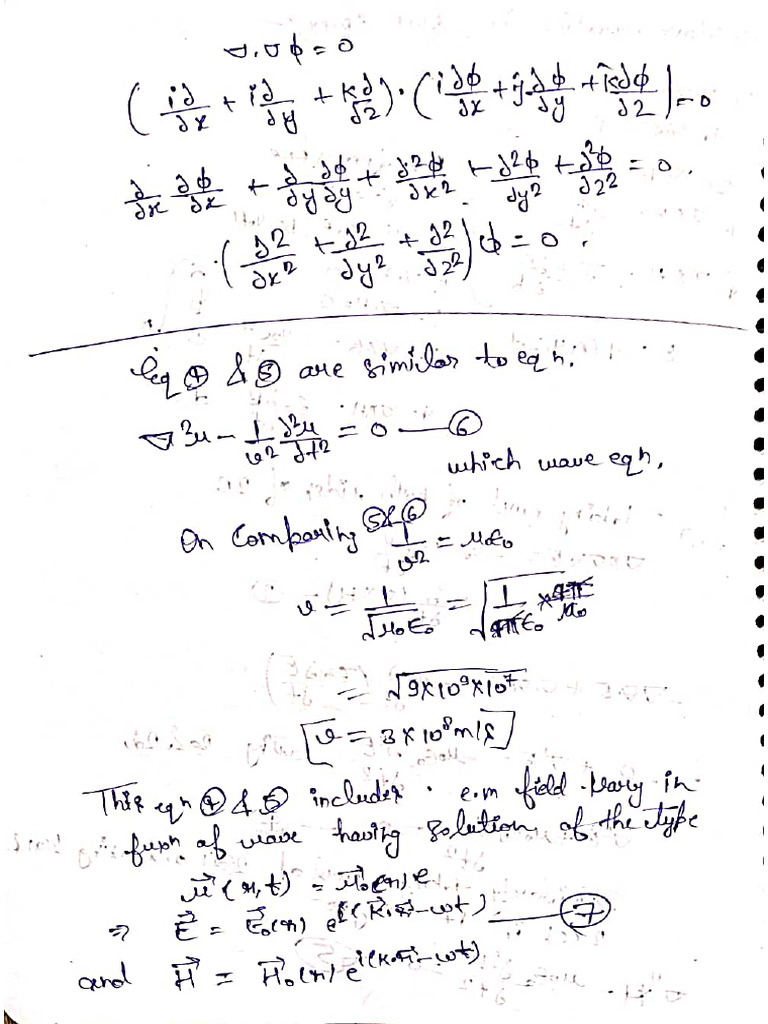 ∇.∇ϕ = 0
( i∂/∂x + i∂/∂y + k∂/∂z ) · ( i ∂ϕ/∂x + ĵ ∂ϕ/∂y + k̂∂ϕ/∂z ) = 0
∂/∂x ∂ϕ/∂x + ∂/∂y ∂ϕ/∂y + ∂²ϕ/∂x² + ∂²ϕ/∂y² + ∂²ϕ/∂z² = 0.
( ∂²/∂x² + ∂²/∂y² + ∂²/∂z² ) ϕ = 0.
Eq ④ & ⑤ are similar to eqn.
∇²u - 1/v² ∂²u/∂t² = 0 — ⑥
which wave eqn,
On Comparing ⑤&⑥
1/v² = μ₀ε₀
v = 1/√μ₀ε₀ = √(1/4πε₀ × 4π/μ₀)
= √9×10⁹×10⁷
v = 3×10⁸ m/s
This eqn ④ & ⑤ includes . e.m field in
of wave having Solution of the type
u⃗(r,t) = u⃗₀(r)e
⇒ E⃗ = E⃗₀(r) e^i(K⃗.r⃗-wt) — ⑦
and H⃗ = H⃗₀(r) e^i(K.r-wt)